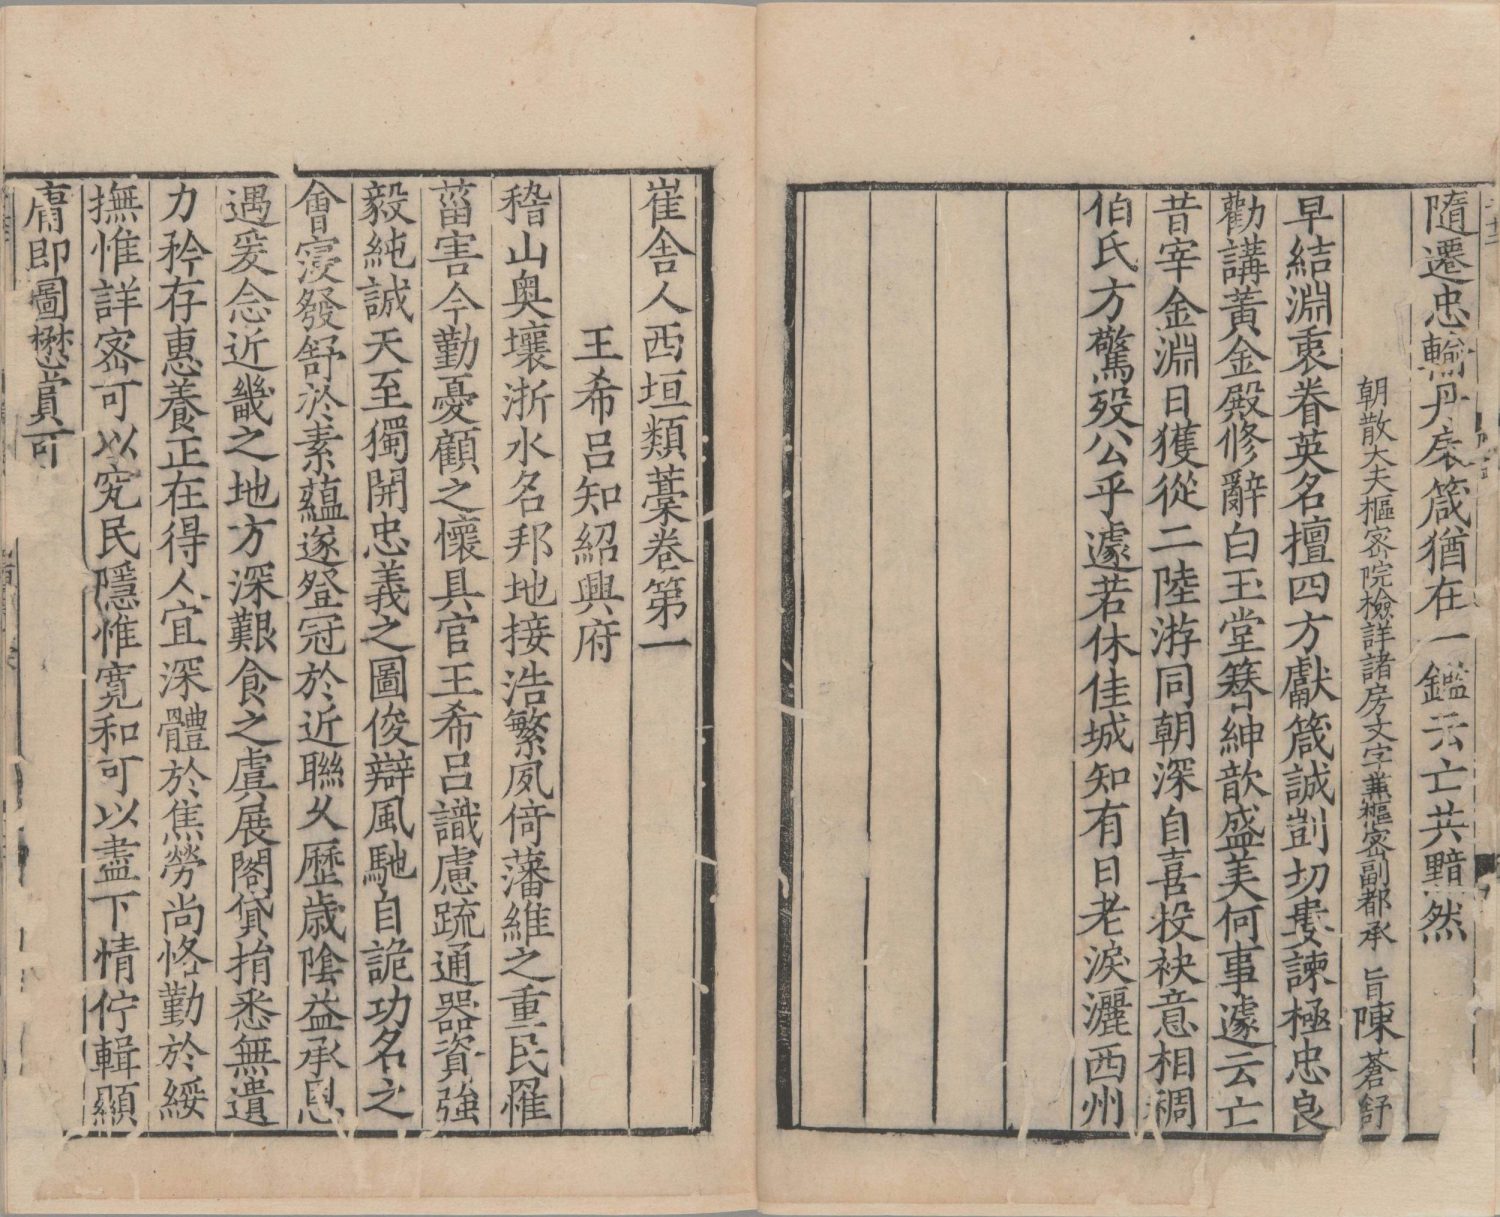 隨遷忠輸丹扆箴猶在一鑑云亡共黯然
朝散大夫樞密院檢詳諸房文字兼樞密副都承 旨陳蒼舒
早結淵衷眷英名擅四方獻箴誠剴切婁諫極忠良
勸講黃金殿修辭白玉堂簪紳歆盛美何事遽云亡
昔宰金淵日獲從二陸游同朝深自喜投袂意相稠
伯氏方驚歿公乎遽若休佳城知有日老淚灑西州
崔舍人西垣類藁卷第一
王希呂知紹興府
稽山奧壤浙水名邦地接浩繁夙倚藩維之重民罹
菑害今勤憂顧之懷具官王希呂識慮疏通器資強
毅純誠天至獨開忠義之圖俊辯風馳自詭功名之
會寖發舒於素蘊遂登冠於近聯久歷歲陰益承恩
遇爰念近畿之地方深艱食之虞展閣貸捐悉無遺
力矜存惠養正在得人宜深體於焦勞尚恪勤於綏
撫惟詳密可以究民隱惟寬和可以盡下情佇輯顯
庸即圖懋賞可